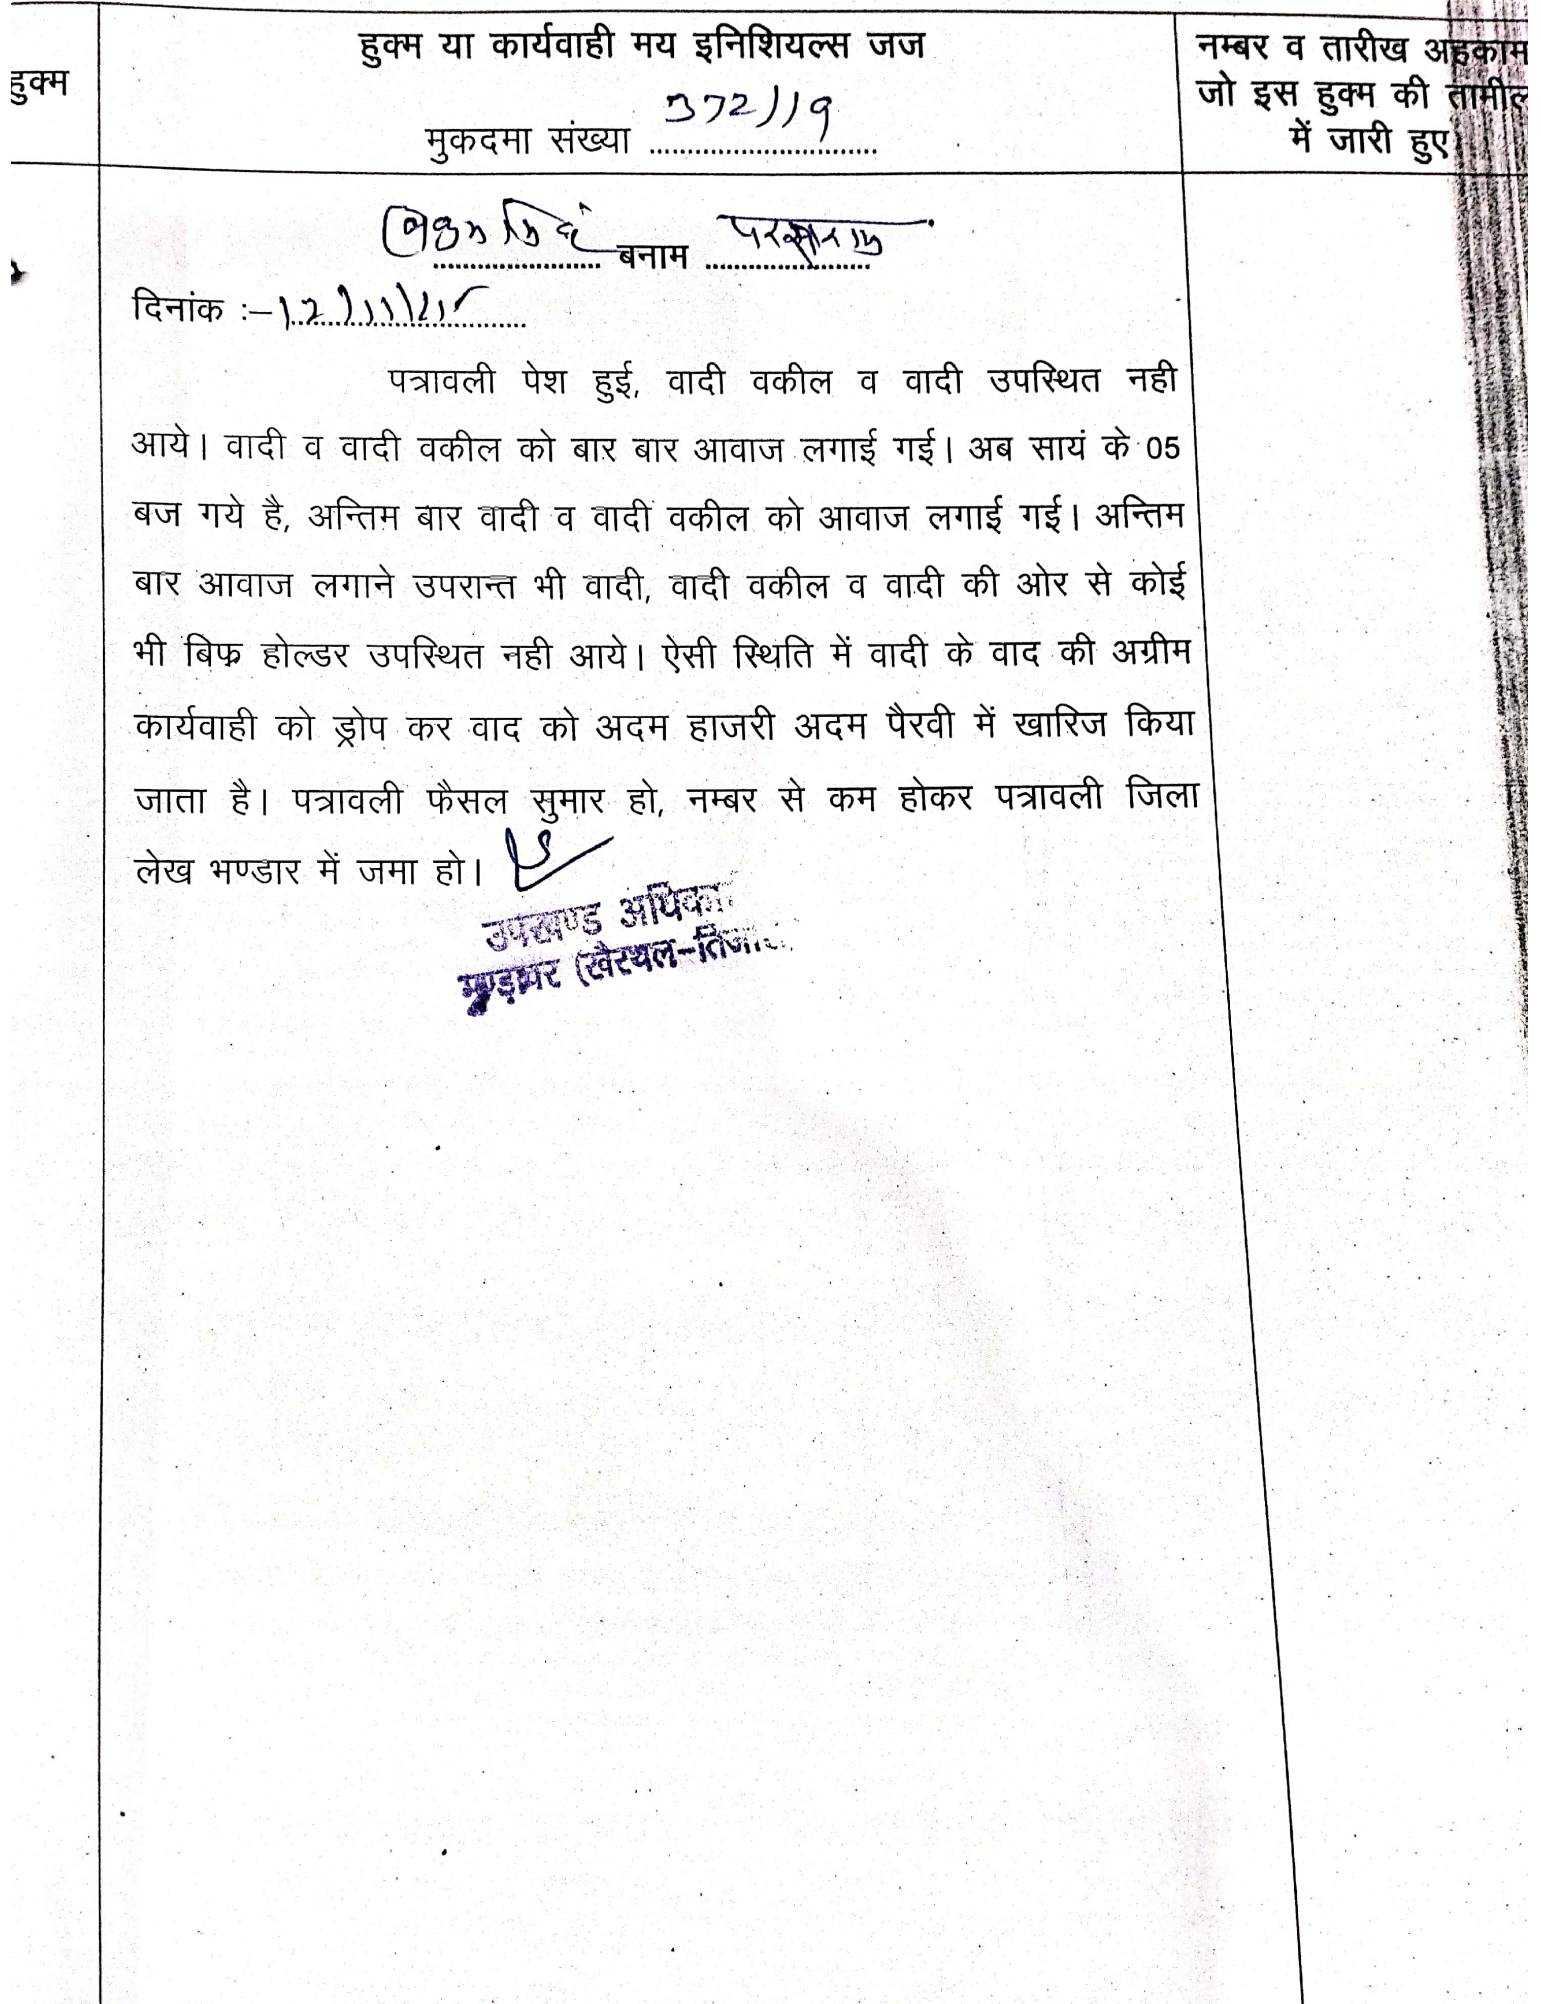 हुक्म
हुक्म या कार्यवाही मय इनिशियल्स जज
मुकदमा संख्या 372/19
नम्बर व तारीख अहकाम
जो इस हुक्म की तामील
में जारी हुए
बनाम परसाराम
दिनांक :– 12/11/25
पत्रावली पेश हुई, वादी वकील व वादी उपस्थित नही
आये। वादी व वादी वकील को बार बार आवाज लगाई गई। अब सायं के 05
बज गये है, अन्तिम बार वादी व वादी वकील को आवाज लगाई गई। अन्तिम
बार आवाज लगाने उपरान्त भी वादी, वादी वकील व वादी की ओर से कोई
भी बिफ्र होल्डर उपस्थित नही आये। ऐसी स्थिति में वादी के वाद की अग्रीम
कार्यवाही को ड्रोप कर वाद को अदम हाजरी अदम पैरवी में खारिज किया
जाता है। पत्रावली फैसल सुमार हो, नम्बर से कम होकर पत्रावली जिला
लेख भण्डार में जमा हो।
उपखण्ड अधिका
मुण्डावर (खैरथल-तिजा